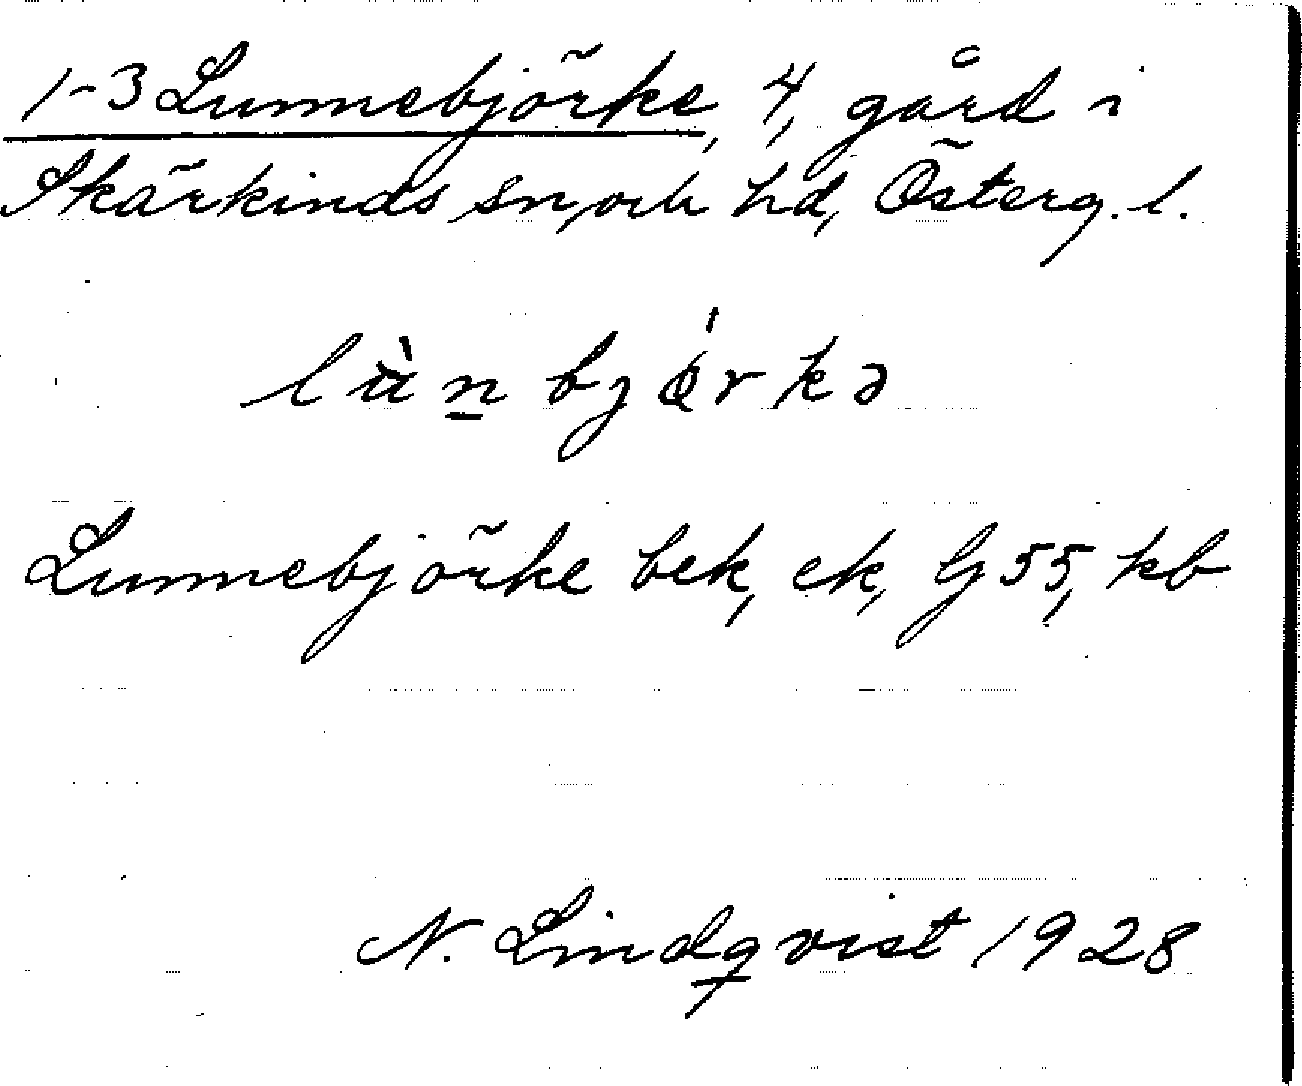 1-3 Lunnebjörke, 4, gård i
Skärkinds sn, och hd, Österg. l.
lùn bjǿrkə
Lunnebjörke bek, ek, G 55, kb
N. Lindqvist 1928